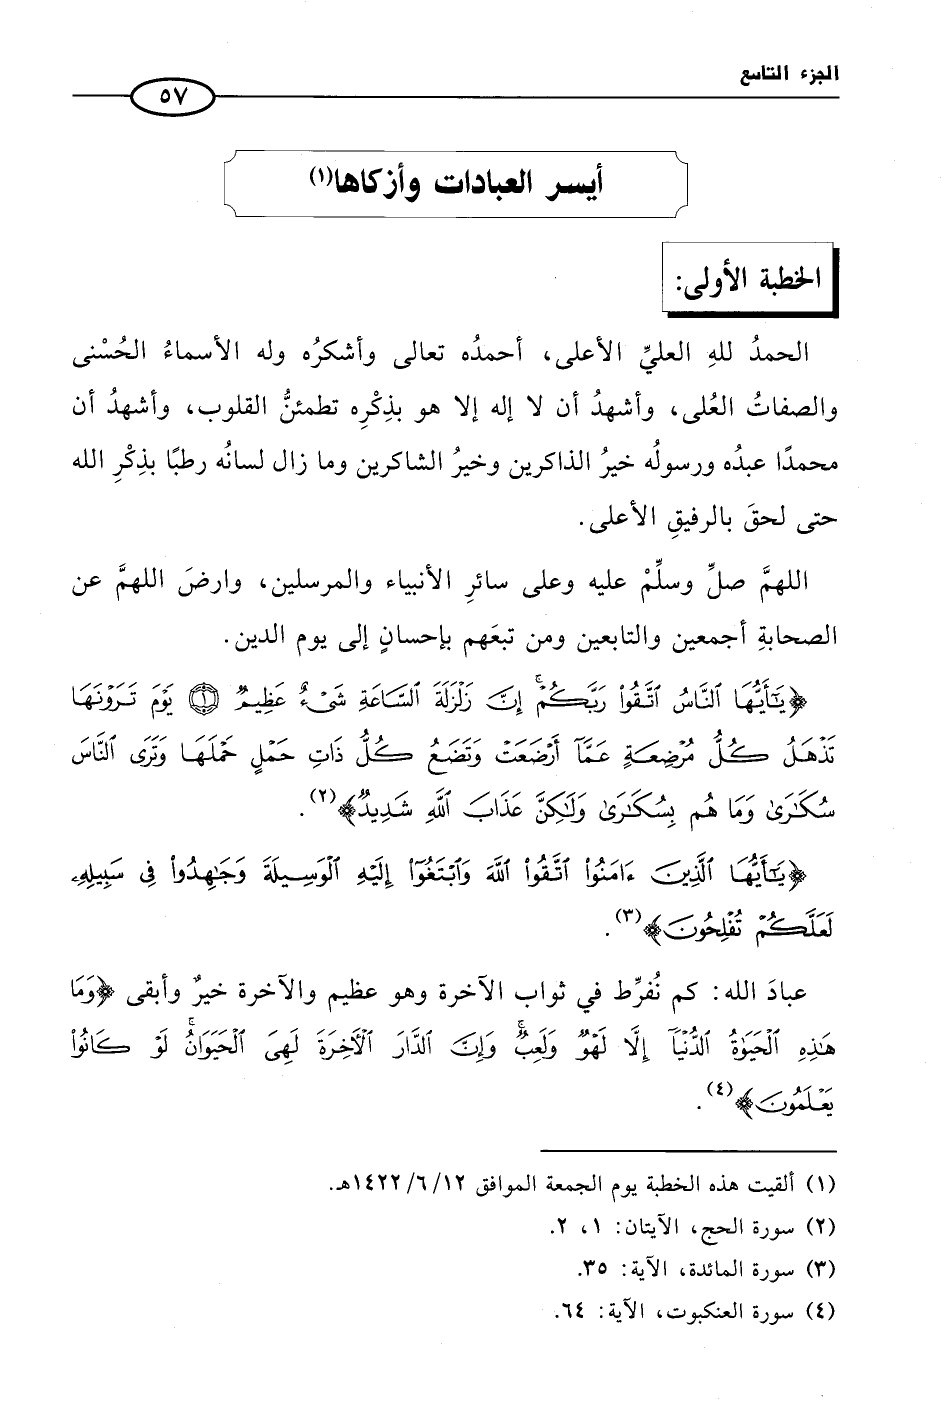 الجزء التاسع
٥٧
أيسر العبادات وأزكاها(١)
الخطبة الأولى:
الحمدُ للهِ العليِّ الأعلى، أحمدُه تعالى وأشكرُه وله الأسماءُ الحُسْنى
والصفاتُ العُلى، وأشهدُ أن لا إله إلا هو بذِكْرِه تطمئنُّ القلوب، وأشهدُ أن
محمدًا عبدُه ورسولُه خيرُ الذاكرين وخيرُ الشاكرين وما زال لسانُه رطبًا بذِكْرِ الله
حتى لحقَ بالرفيقِ الأعلى.
اللهمَّ صلِّ وسلِّمْ عليه وعلى سائرِ الأنبياء والمرسلين، وارضَ اللهمَّ عن
الصحابةِ أجمعين والتابعين ومن تبعَهم بإحسانٍ إلى يوم الدين.
﴿يَٰٓأَيُّهَا ٱلنَّاسُ ٱتَّقُوا۟ رَبَّكُمْ ۚ إِنَّ زَلْزَلَةَ ٱلسَّاعَةِ شَىْءٌ عَظِيمٌ ۝١ يَوْمَ تَرَوْنَهَا
تَذْهَلُ كُلُّ مُرْضِعَةٍ عَمَّآ أَرْضَعَتْ وَتَضَعُ كُلُّ ذَاتِ حَمْلٍ حَمْلَهَا وَتَرَى ٱلنَّاسَ
سُكَٰرَىٰ وَمَا هُم بِسُكَٰرَىٰ وَلَٰكِنَّ عَذَابَ ٱللَّهِ شَدِيدٌ﴾(٢).
﴿يَٰٓأَيُّهَا ٱلَّذِينَ ءَامَنُوا۟ ٱتَّقُوا۟ ٱللَّهَ وَٱبْتَغُوٓا۟ إِلَيْهِ ٱلْوَسِيلَةَ وَجَٰهِدُوا۟ فِى سَبِيلِهِۦ
لَعَلَّكُمْ تُفْلِحُونَ﴾(٣).
عبادَ الله: كم نُفرِّط في ثواب الآخرة وهو عظيم والآخرة خيرٌ وأبقى ﴿وَمَا
هَٰذِهِ ٱلْحَيَوٰةُ ٱلدُّنْيَآ إِلَّا لَهْوٌ وَلَعِبٌ ۚ وَإِنَّ ٱلدَّارَ ٱلْءَاخِرَةَ لَهِىَ ٱلْحَيَوَانُ ۚ لَوْ كَانُوا۟
يَعْلَمُونَ﴾(٤).
(١) ألقيت هذه الخطبة يوم الجمعة الموافق ١٤٢٢/٦/١٢هـ.
(٢) سورة الحج، الآيتان: ١، ٢.
(٣) سورة المائدة، الآية: ٣٥.
(٤) سورة العنكبوت، الآية: ٦٤.